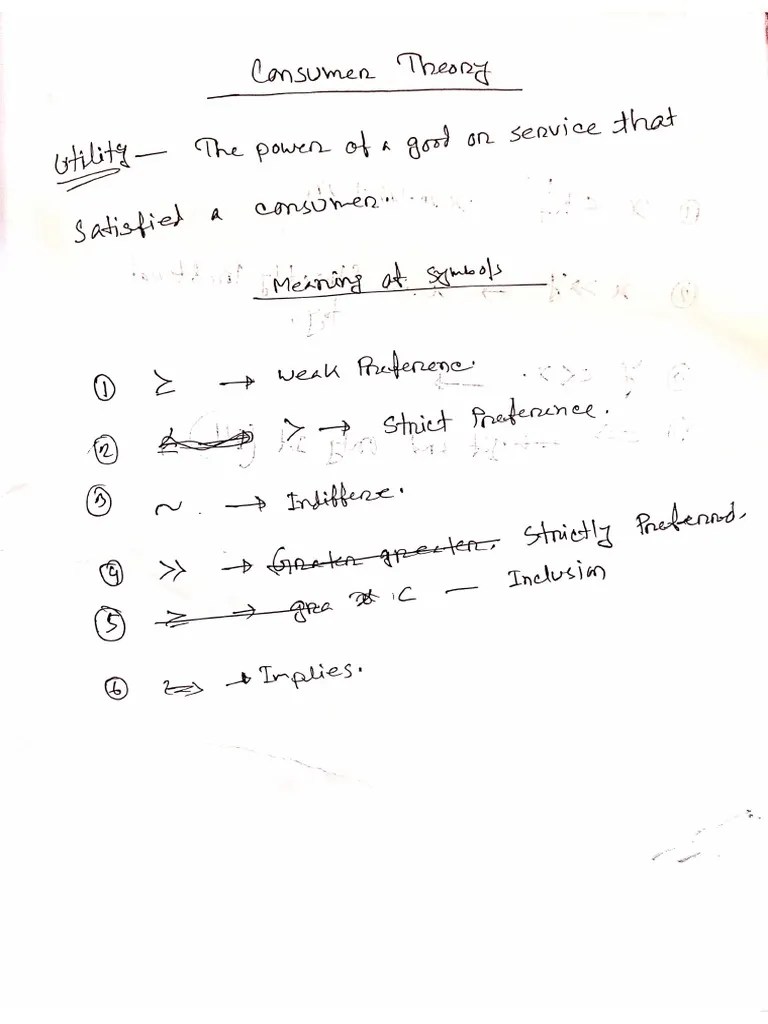 Consumer Theory
Utility — The power of a good or service that
Satisfied a consumer.
Meaning of Symbols
① ≥ → Weak Preference.
② > → Strict Preference.
③ ~ → Indiffere.
④ >> → Greater greater. Strictly Preferred.
⑤ ≥ → gra ⊂ — Inclusion
⑥ → Implies.